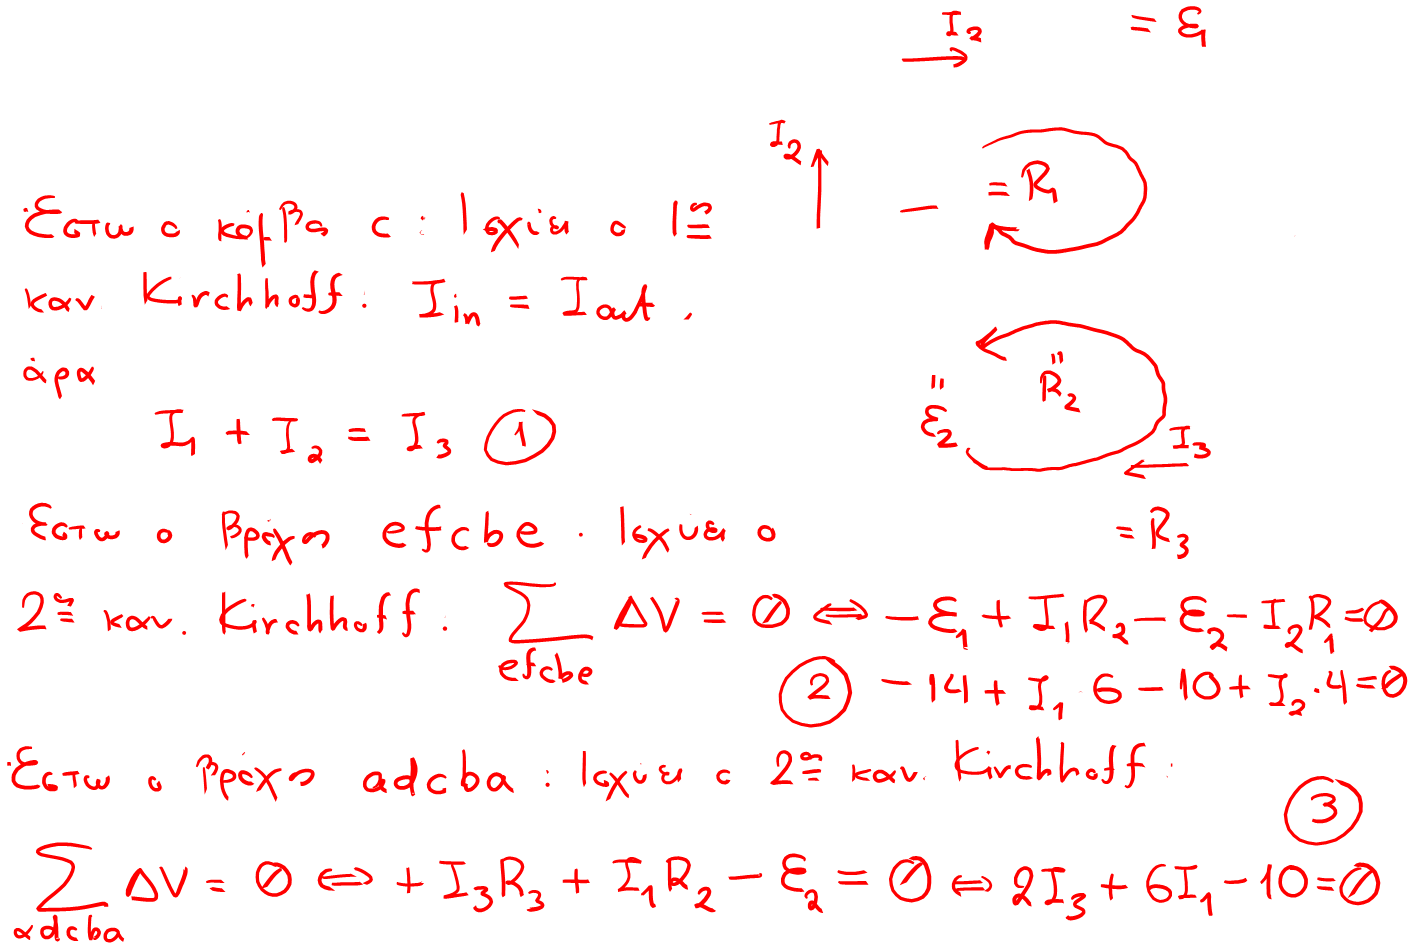 I₂ = ε₁
I₂
= R₁
Έστω ο κόμβος c : Ισχύει ο 1ος
καν. Kirchhoff. I_in = I_out .
άρα
I₁ + I₂ = I₃ (1)
" R₂
" ε₂
I₃
= R₃
Έστω ο βρόχος efcbe . Ισχύει ο
2ος καν. Kirchhoff. ∑_efcbe ΔV = 0 ⇔ -ε₁ + I₁R₂ - ε₂ - I₂R₁ = 0
(2) -14 + I₁ 6 - 10 + I₂·4 = 0
Έστω ο βρόχος adcba : Ισχύει ο 2ος καν. Kirchhoff.
(3)
∑_adcba ΔV = 0 ⇔ + I₃R₃ + I₁R₂ - ε₂ = 0 ⇔ 2I₃ + 6I₁ - 10 = 0